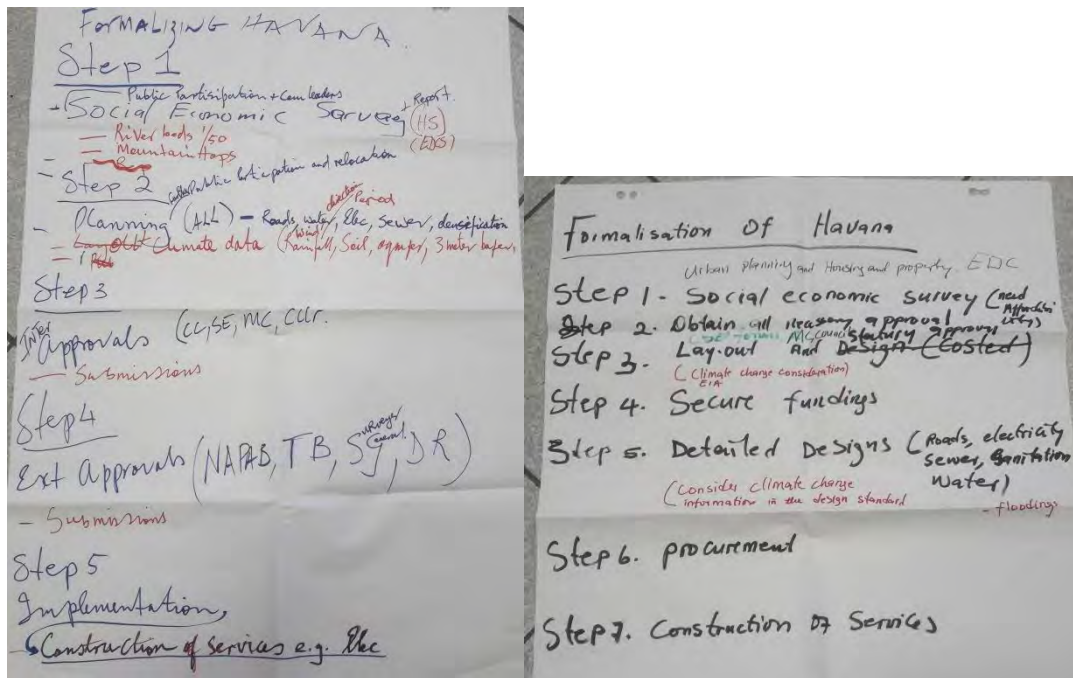 FORMALIZING HAVANA.
Step 1
Public Partisipation + Com leaders
- Social Economic Servey + Report
(HS)
(EDCS)
- River beds 1/50
- Mountain tops
Step 2 Public Participation and relocation
direction Period
- Planning (ALL) - Roads, water, Elec, Sewer, densification
- Climate data (Rainfall, Wind, Soil, aquifer, 3 meter
Step 3
INTER
Approvals (CC, SE, MC, CCLr.
- Submissions
Step 4
surveys general
Ext Approvals (NAPAB, TB, SG, DR)
- Submissions
Step 5
Implementation,
Construction of services e.g. Elec
Formalisation Of Havana
Urban planning and Housing and property EDC
Step 1. Social economic survey (need Affordability)
Step 2. Obtain all approval
MC, Council statury approval
Step 3. Lay-out And Design (Costed)
(Climate change consideration)
EIA
Step 4. Secure fundings
Step 5. Detailed Designs (Roads, electricity
Sewer, Sanitation
Water)
(Consider climate change
information in the design standard
- floodings
Step 6. procurement
Step 7. Construction Of Services